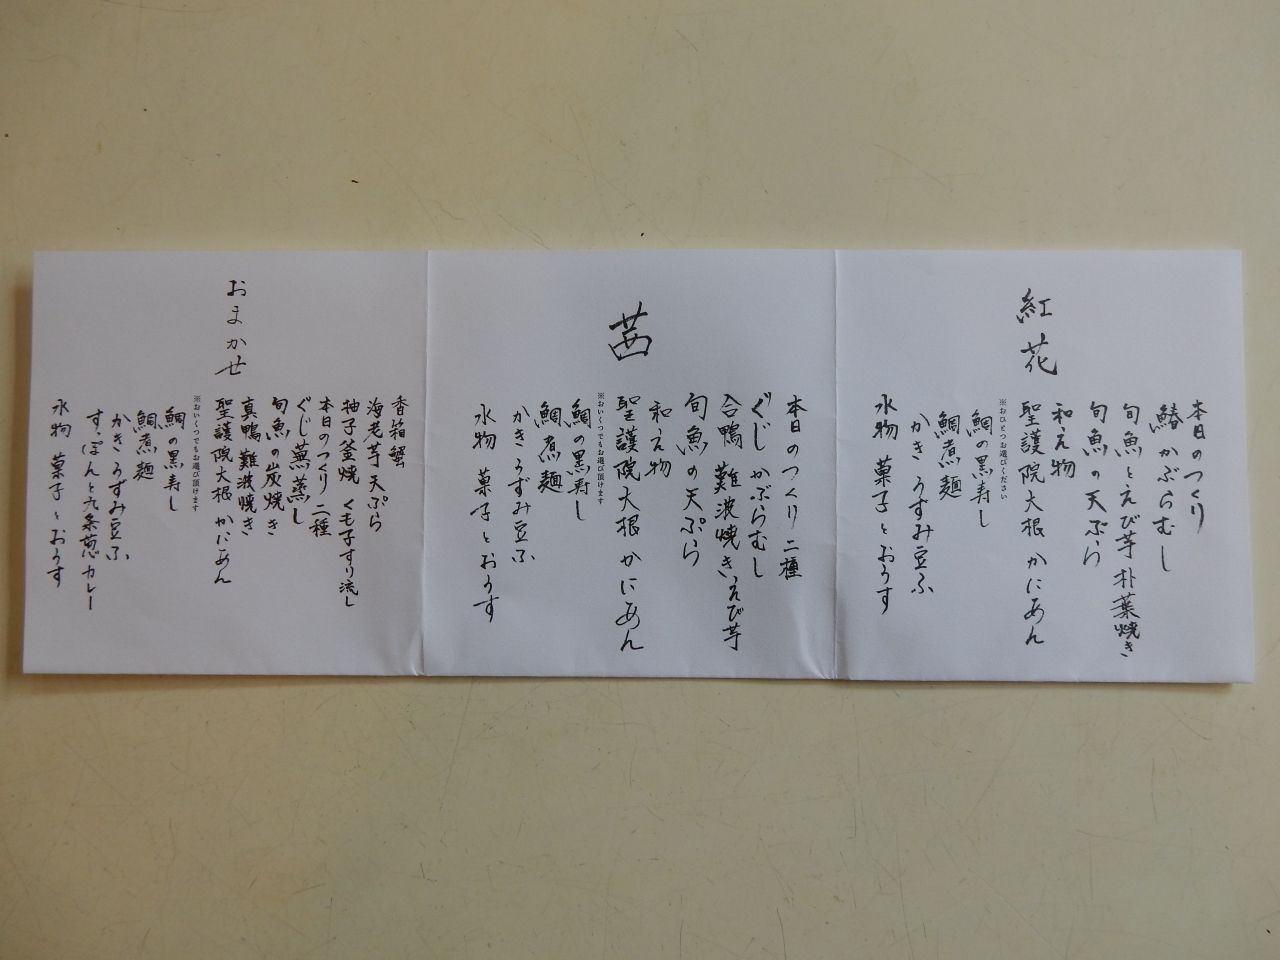 紅花
本日のつくり
鰆かぶらむし
旬魚とえび芋朴葉焼き
旬魚の天ぷら
和え物
聖護院大根かにあん
※おひとつお選びください
鯛の黒寿し
鯛煮麺
かきうずみ豆ふ
水物 菓子とおうす
茜
本日のつくり二種
ぐじかぶらむし
合鴨難波焼きえび芋
旬魚の天ぷら
和え物
聖護院大根かにあん
※おいくつでもお選び頂けます
鯛の黒寿し
鯛煮麺
かきうずみ豆ふ
水物 菓子とおうす
おまかせ
香箱蟹
海老芋天ぷら
柚子釜焼 くも子すり流し
本日のつくり 二種
ぐじ蕪蒸し
旬魚の炭焼き
真鴨難波焼き
聖護院大根かにあん
※おいくつでもお選び頂けます
鯛の黒寿し
鯛煮麺
かきうずみ豆ふ
すっぽんと九条葱カレー
水物 菓子とおうす